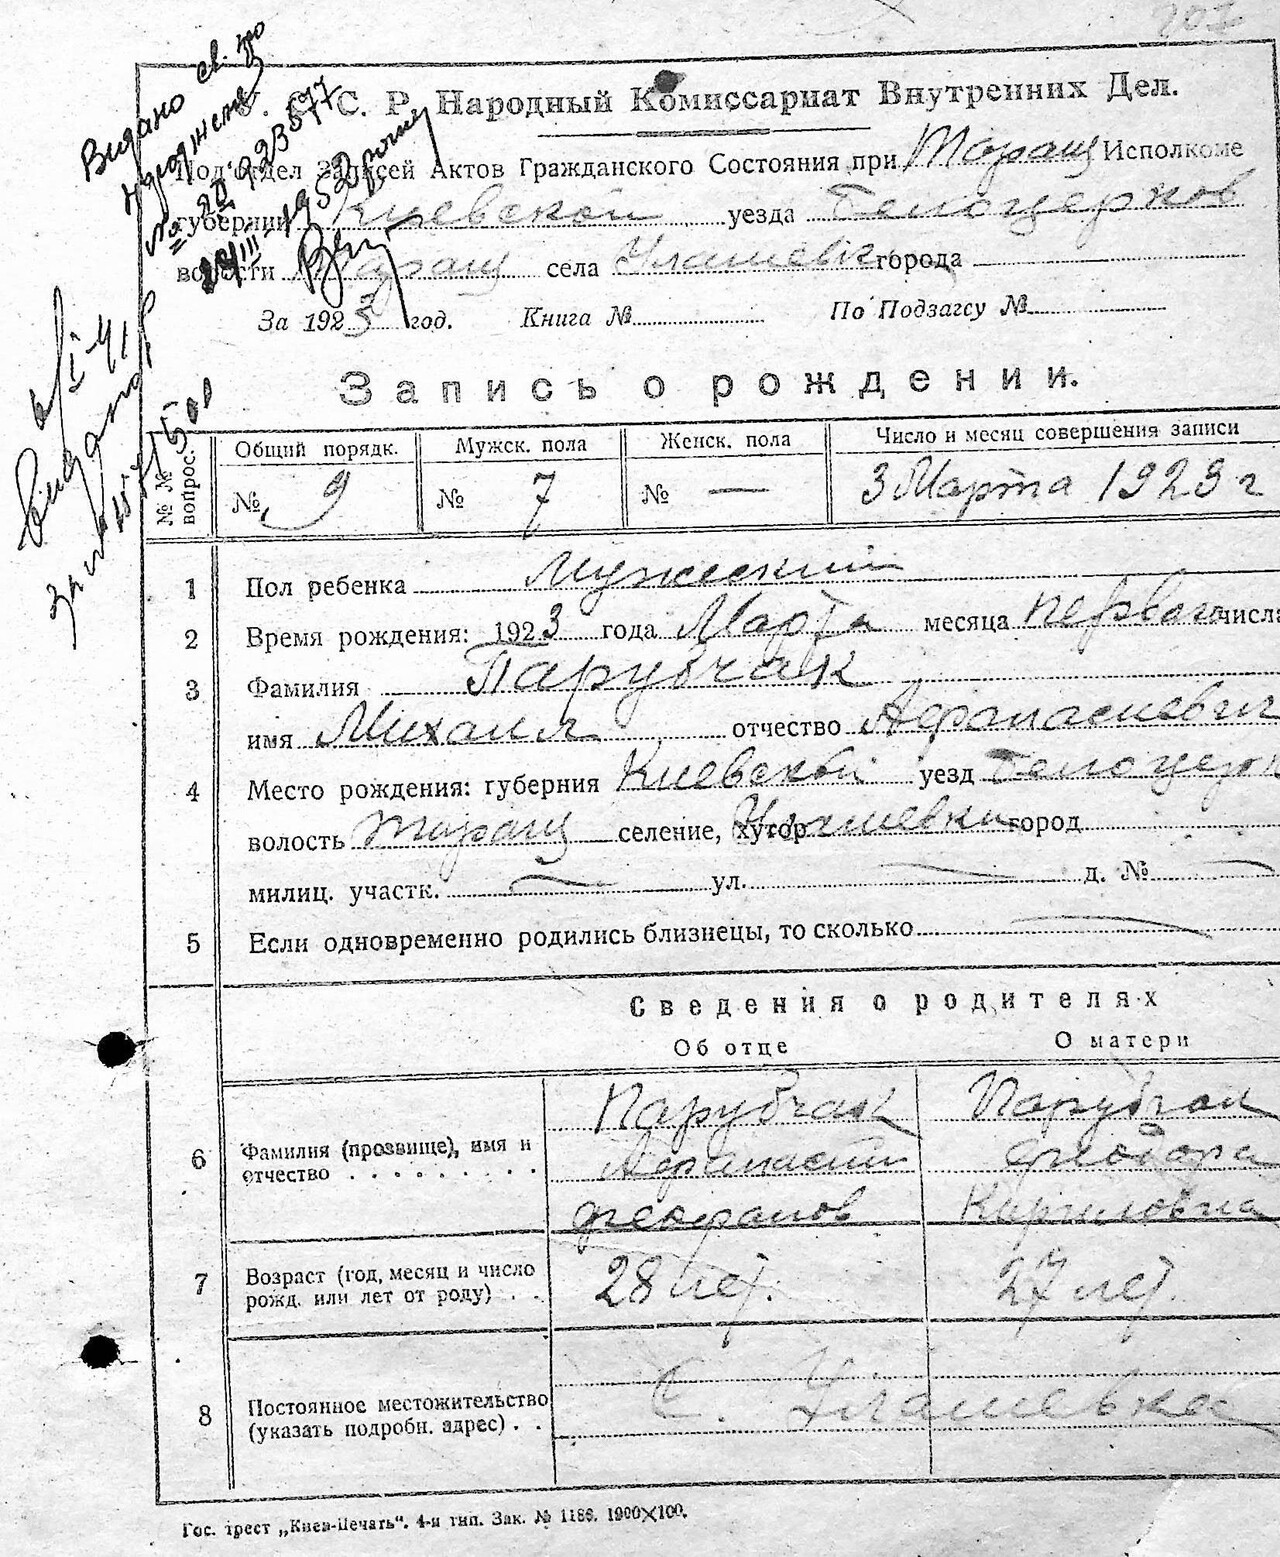 207
Видано св. про
народження
№ 923577
1952
У. С. С. Р. Народный Комиссариат Внутренних Дел.
Под'отдел Записей Актов Гражданского Состояния при Таращ Исполкоме
губернии Киевской уезда Белоцерков
волости Таращ села Улашевк города
За 1923 год. Книга № По Подзагсу №
Запись о рождении.
№ № вопрос. Общий порядк. Мужск. пола Женск. пола Число и месяц совершения записи
№ 9 № 7 № — 3 Марта 1923 г
1 Пол ребенка Мужеский
2 Время рождения: 1923 года Марта месяца первого числа
3 Фамилия Парубчак
имя Михаил отчество Афанасиевич
4 Место рождения: губерния Киевской уезд Белоцерк
волость Таращ селение, хутор Улашевки город
милиц. участк. — ул. — д. № —
5 Если одновременно родились близнецы, то сколько —
Сведения о родителях
Об отце О матери
6 Фамилия (прозвище), имя и отчество Парубчак Афанасий Феофанов Парубчак Феодора Кириловна
7 Возраст (год, месяц и число рожд. или лет от роду) 28 лет. 27 лет.
8 Постоянное местожительство (указать подробн. адрес) С. Улашевка
Гос. трест „Киев-Печать". 4-я тип. Зак. № 1186. 1900×100.